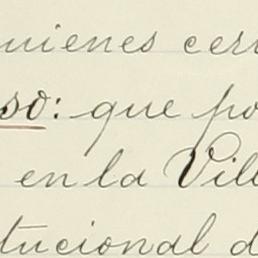 uienes cer
so: que po
en la Vill
tucional d